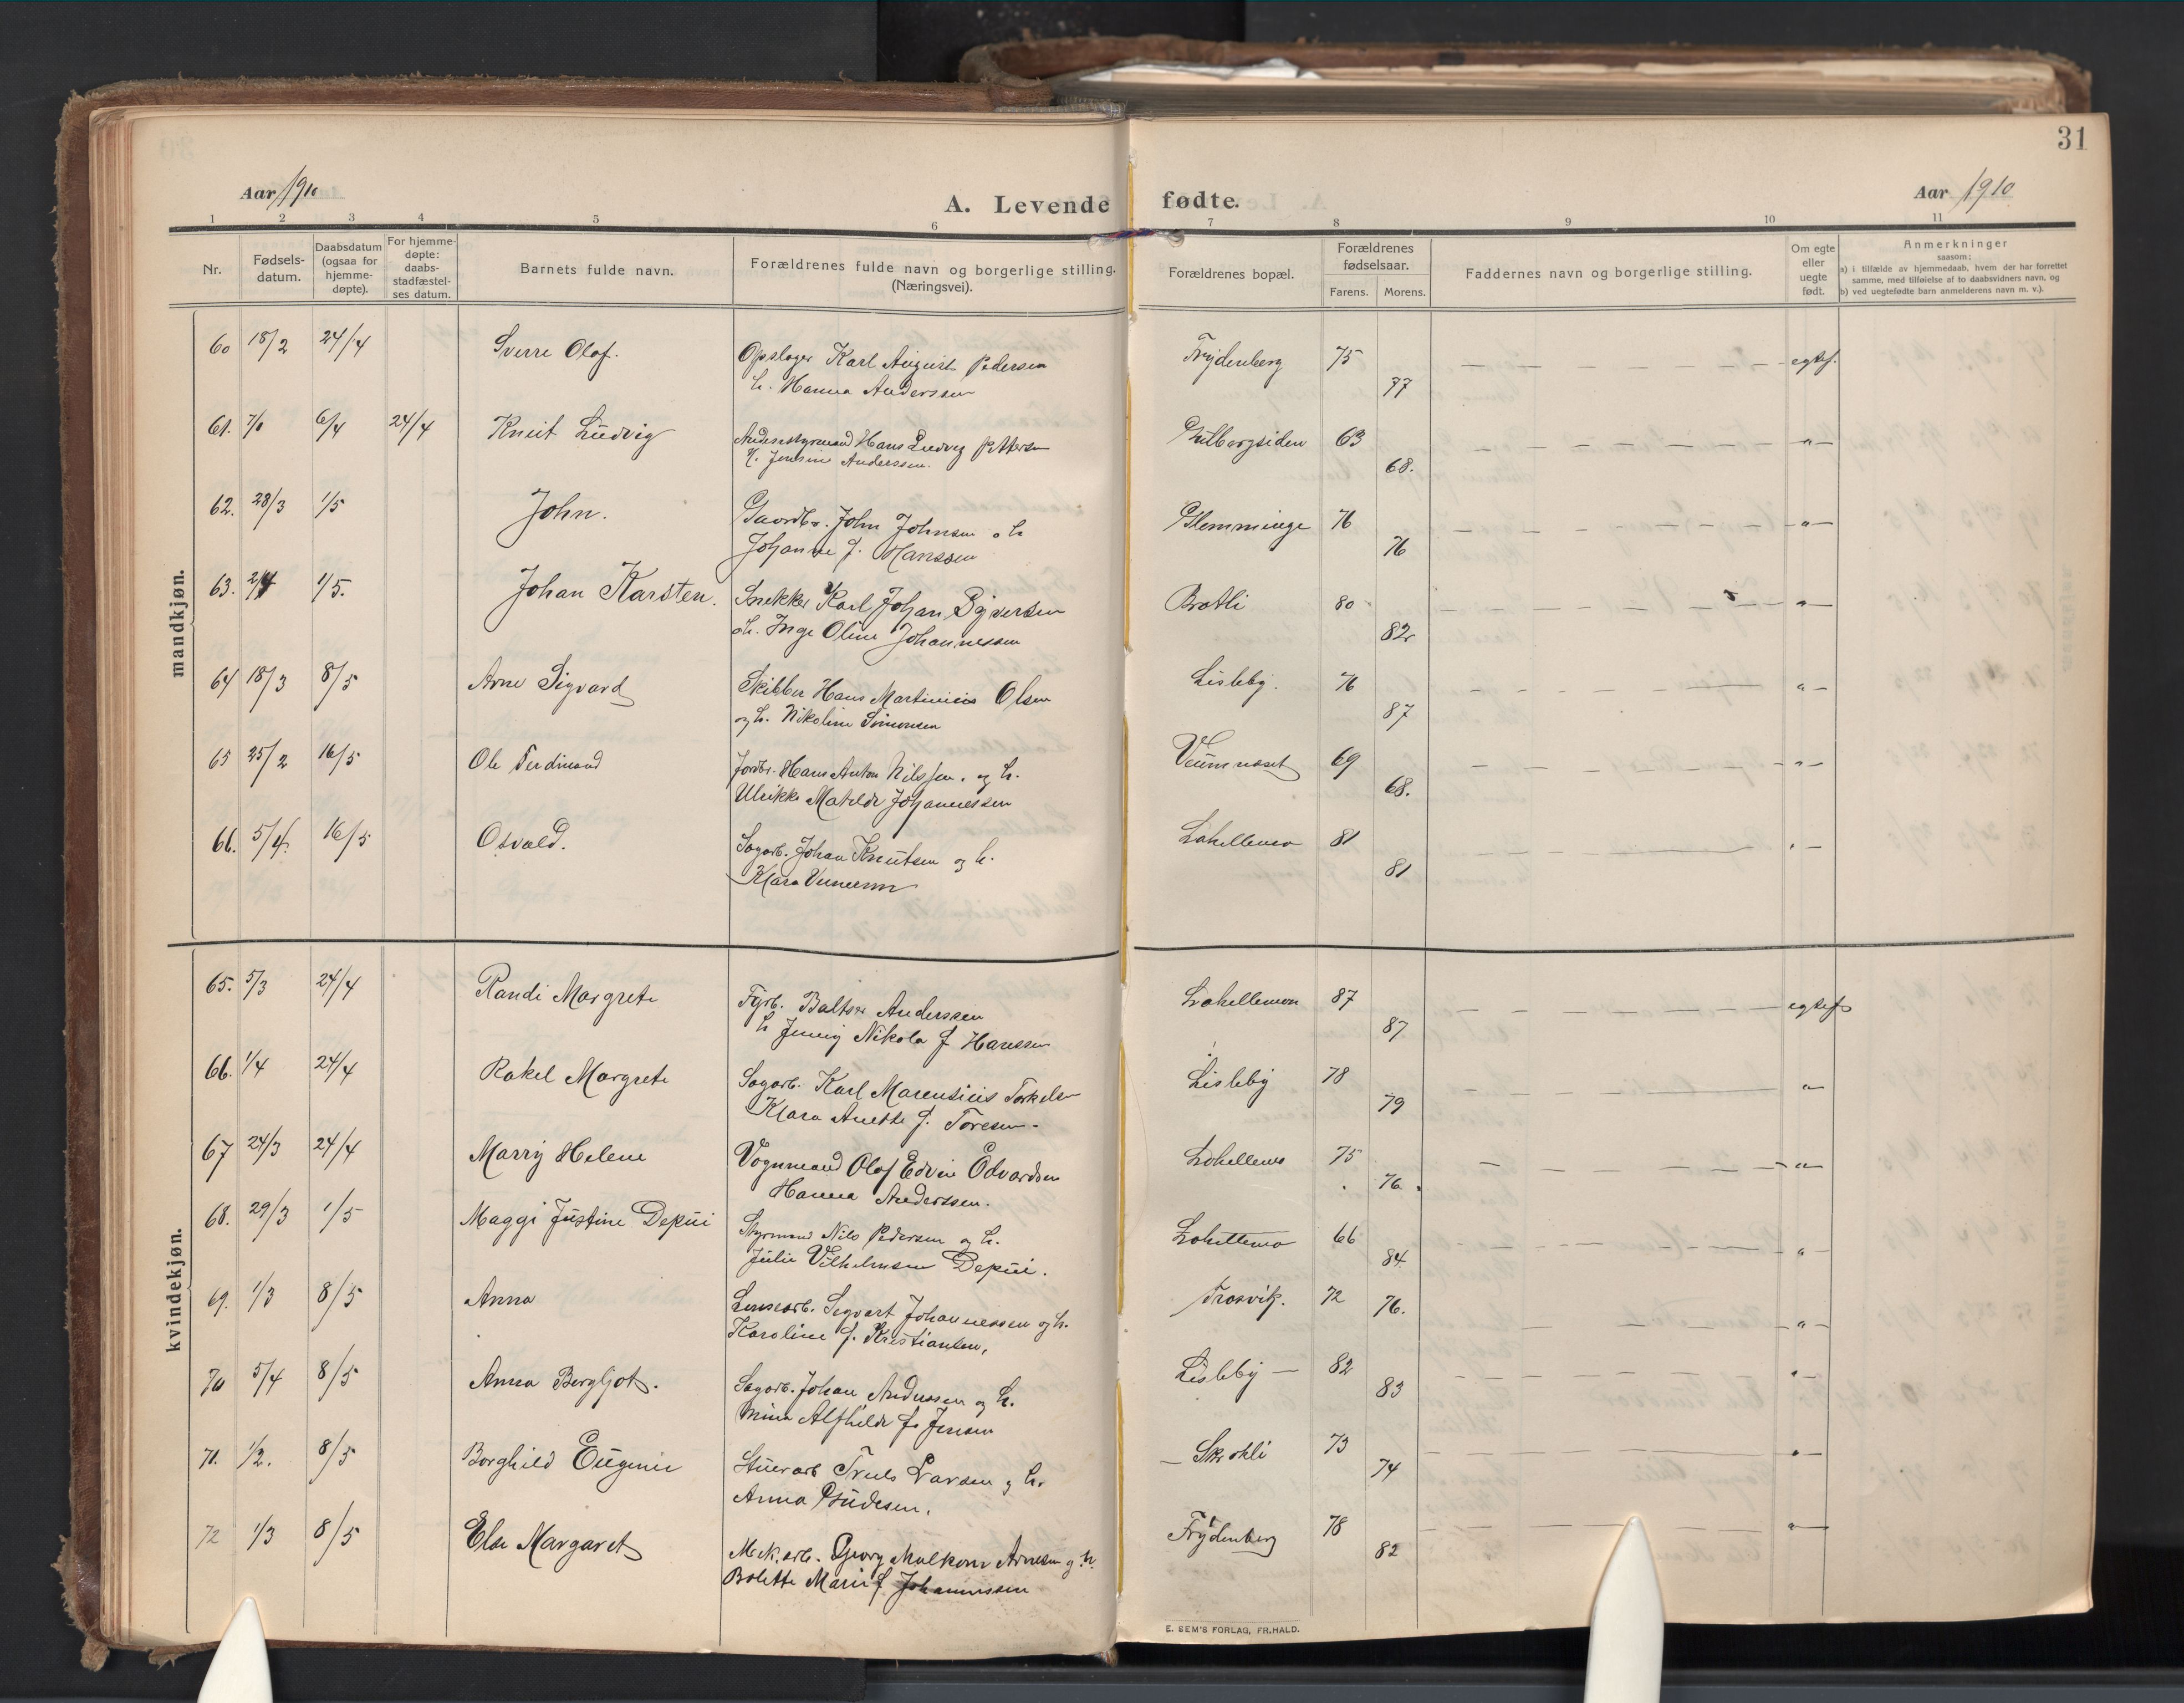 31
Aar 1910
A. Levende fødte.
Aar 1910
1 2 3 4 5 6 7 8 9 10 11
Nr.
Fødsels-
datum.
Daabsdatum
(ogsaa for
hjemme-
døpte).
For hjemme-
døpte:
daabs-
stadfæstel-
ses datum.
Barnets fulde navn.
Forældrenes fulde navn og borgerlige stilling.
(Næringsvei).
Forældrenes bopæl.
Forældrenes
fødselsaar.
Farens. Morens.
Faddernes navn og borgerlige stilling.
Om egte
eller
uegte
født.
Anmerkninger
saasom:
a) i tilfælde av hjemmedaab, hvem der har forrettet
samme, med tilføielse af to daabsvidners navn, og
b) ved uegtefødte barn anmelderens navn m. v.).
mandkjøn.
60 18/2 24/4 Sverre Olaf. Opslager Karl August Pedersen Frydenberg 75 egtef.
h. Hanna Anderssen 77
61. 7/1 6/4 24/4 Knut Ludvig Andenstyrmand Hans Ludvig Pettersen Gulbergsiden 63 - " -
h. Jensine Anderssen. 68.
62. 28/3 1/5 John. Gaardbr. John Johnsen o h Glemminge 76 - " -
Johanne f. Hanssen 76
63. 2/4 1/5. Johan Karsten. Snekker Karl Johan Syversen Bratli 80 - " -
o h. Inga Oline Johannessen 82
64 18/3 8/5 Arne Sigvard Skibber Hans Martinius Olsen Lisleby. 76 " -
og h. Nikoline Simonsen 87
65 25/2 16/5 Ole Ferdinand Jordbr. Hans Anton Nilssen. og h. Veumnæset 69 - " -
Ulrikke Matilde Johannessen 68.
66. 5/4. 16/5 Osvald. Sagarb. Johan Knutsen og h. Lahellemo 81 " -
Klara 81
kvindekjøn.
65. 5/3 24/4 Randi Margrete Fyrb. Baltser Anderssen Lahellemoen 87 egtef
h Jenny Nikola f Hanssen 87
66. 1/4 24/4 Rakel Margrete Sagarb. Karl Marensius Torkelsen Lisleby 78 "
Klara Anette f. Toresen. 79
67 24/3 24/4 Marry Helene Vognmand Olaf Edvin Edvardsen Lahellemo 75 - " -
Hanna Anderssen. 76.
68. 29/3 1/5 Maggi Justine Depui Styrmand Nils Pedersen og h. Lahellemo 66 "
Julie Vilhelmsen Depui. 84.
69. 1/3 8/5 Anna Lensearb. Sigvart Johannessen og h. Trosvik. 72 76. - " -
Karoline f. Kristiansen.
70 5/4 8/5 Anna Bergljot. Sagarb. Johan Anderssen og h. Lisleby - 82 " -
Mina Alfhilde f. Jensen 83
71. 1/2. 8/5 Borghild Eugenie Stuerarb Truls Larsen og h. - Skrokli 73 " -
Anna Gudesen. 74
72 1/3 8/5 Else Margaret Mek. arb. Georg Malkom Arnesen og h. Frydenberg 78 " -
Bolette Marie f Johannessen 82
E. SEM'S FORLAG, FR.HALD.